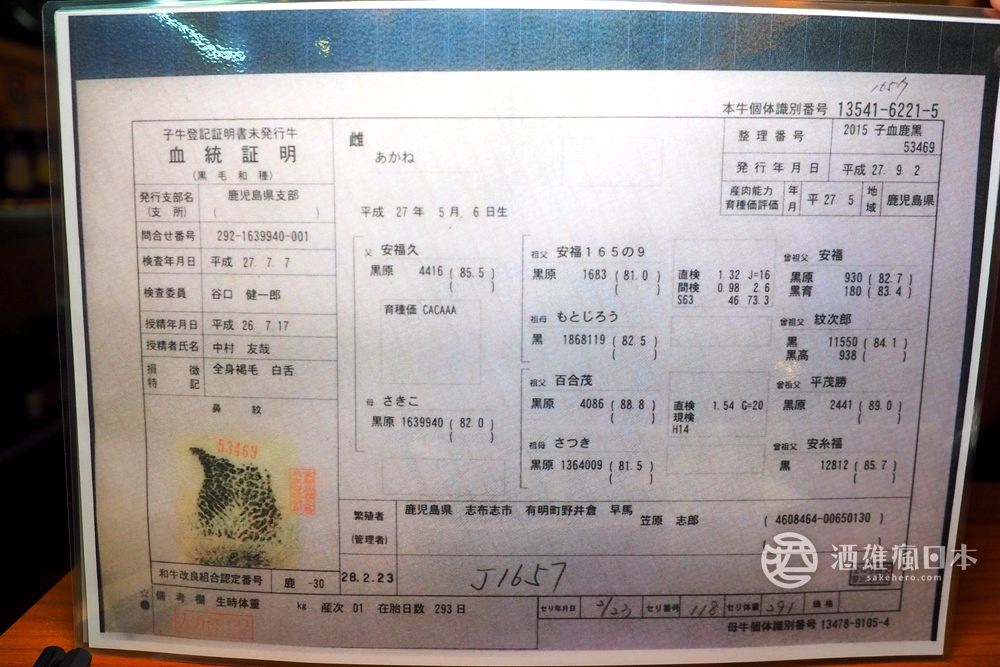 1657
本牛個体識別番号 13541-6221-5
子牛登記証明書未発行牛
血統証明
(黒毛和種)
雌
あかね
整理番号 2015 子血鹿黒 53469
発行年月日 平成 27. 9. 2
産肉能力育種価評価 年月 平 27 5 地域 鹿児島県
発行支部名(支所) 鹿児島県支部 ( )
平成 27 年 5 月 6 日生
問合せ番号 292-1639940-001
検査年月日 平成 27. 7. 7
検査委員 谷口 健一郎
授精年月日 平成 26. 7.17
授精者氏名 中村 友哉
損徴特記 全身褐毛 白舌
鼻紋
53469
父 安福久
黒原 4416 ( 85.5 )
( )
育種価 CACAAA
母 さきこ
黒原 1639940 ( 82.0 )
( )
祖父 安福165の9
黒原 1683 ( 81.0 )
( )
直検 1.32 J=16
間検 0.98 2.6
S63 46 73.3
曾祖父 安福
黒原 930 ( 82.7 )
黒育 180 ( 83.4 )
祖母 もとじろう
黒 1868119 ( 82.5 )
( )
曾祖父 紋次郎
黒 11550 ( 84.1 )
黒高 938 ( )
祖父 百合茂
黒原 4086 ( 88.8 )
( )
直検 1.54 G=20
現検
H14
曾祖父 平茂勝
黒原 2441 ( 89.0 )
( )
祖母 さつき
黒原 1364009 ( 81.5 )
( )
曾祖父 安糸福
黒 12812 ( 85.7 )
( )
繁殖者(管理者) 鹿児島県 志布志市 有明町野井倉 早馬
笠原 志郎 ( 4608464-00650130 )
和牛改良組合認定番号 鹿 -30
28.2.23
J1657
酒雄瘋日本
sakehero.com
☆備考欄 生時体重 kg 産次 01 在胎日数 293 日
セリ年月日 2/23 セリ番号 118 セリ体重 291 価格
母牛個体識別番号 13478-9105-4